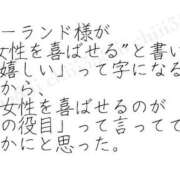 ーランド様が
女性を喜ばせる”と書い
嬉しい」って字になる
から、
女性を喜ばせるのが
の役目」って言ってて
かにと思った。